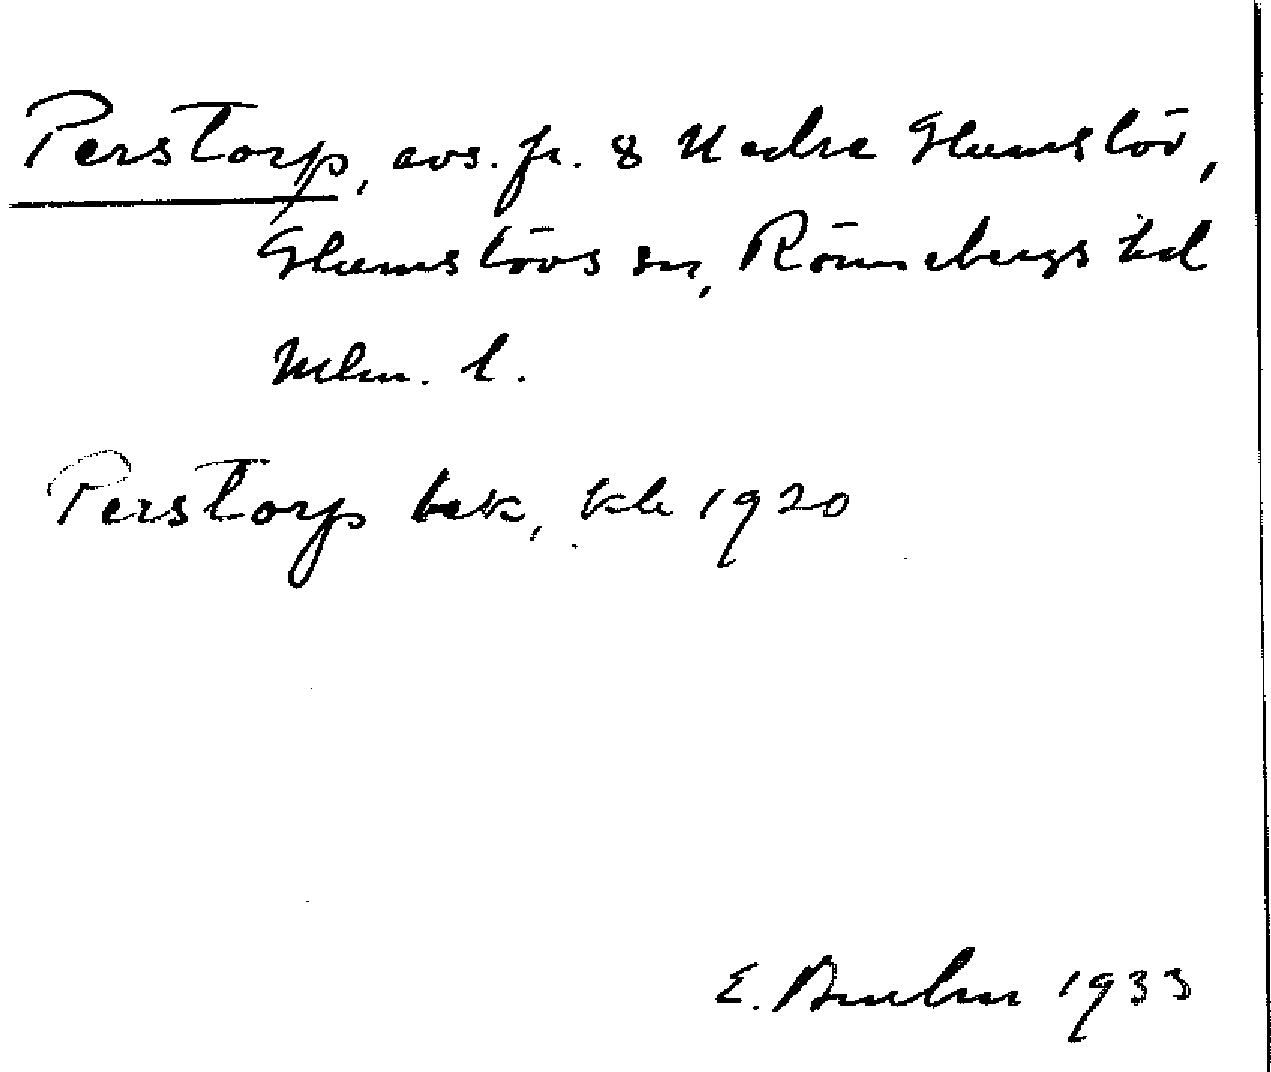 Perstorp, avs. fr. 8 Nedre Glumslöv,
Glumslövs sn, Rönnebergs hd
Mlm. l.
Perstorp bek, kb 1920
E. 1933